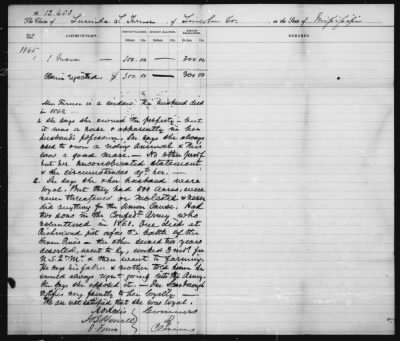 No. 12,603
The Claim of Lucinda S. Turner of Lincoln Co. in the State of Mississippi
NATURE OF CLAIM. REMARKS.
1865
1 1 Mare — 300.00 — 300.00
Claim rejected $ 300.00 — 300.00
Mrs Turner is a widow. Her husband died
in 1862.
1. She says she owned the property — but
it was a mare & apparently in her
husband's possession. She says she always
used to own a riding animal & this
was a good mare. — No other proof
but her uncorroborated statement
& the circumstances of her. —
2. She says she & her husband were
loyal. But they had 800 acres, were
never threatened or molested & never
did anything for the Union Cause. Had
two sons in the Confed. Army who
volunteered in 1861. One died at
Richmond just before the battle of the
Seven Pines — the other served two years
deserted, went to
U.S. & then went to farming.
He says his father & mother told him he
would always repent going into the Army.
She says she opposed it. — One
testifies very faintly to her loyalty —
We are not satisfied that she was loyal.
A. O. Aldis
J. B. Howell
O. Ferriss
Commrs
of
Claims